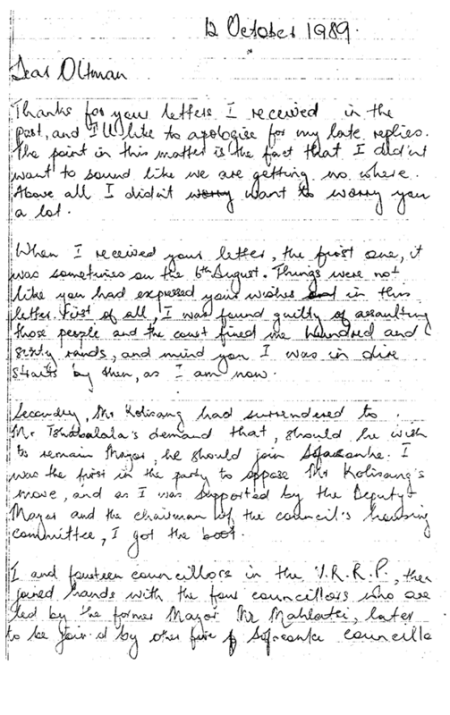 12 October 1989.
Dear Oltman
Thanks for your letters I received in the
past, and I'll like to apologise for my late replies.
The point in this matter is the fact that I didn't
want to sound like we are getting no where.
Above all I didn't worry want to worry you
a lot.
When I received your letter, the first one, it
was sometimes on the 6th August. Things were not
like you had expressed your wishes in this
letter. First of all, I was found guilty of assaulting
those people and the court fined me hundred and
sixty rands, and mind you I was in dire
straits by then, as I am now.
Secondly, Mr Kolisang had surrendered to
Mr Tshabalala's demand that, should he wish
to remain Mayor, he should join Sofasonke. I
was the first in the party to oppose Mr Kolisang's
move, and as I was supported by the Deputy
Mayor and the chairman of the council's housing
committee, I got the boot.
I and fourteen councillors in the V.R.R.P., then
joined hands with the four councillors who are
led by the former Mayor Mr Mahlatsi, later
to be join d by other five of Sofasonke councillo